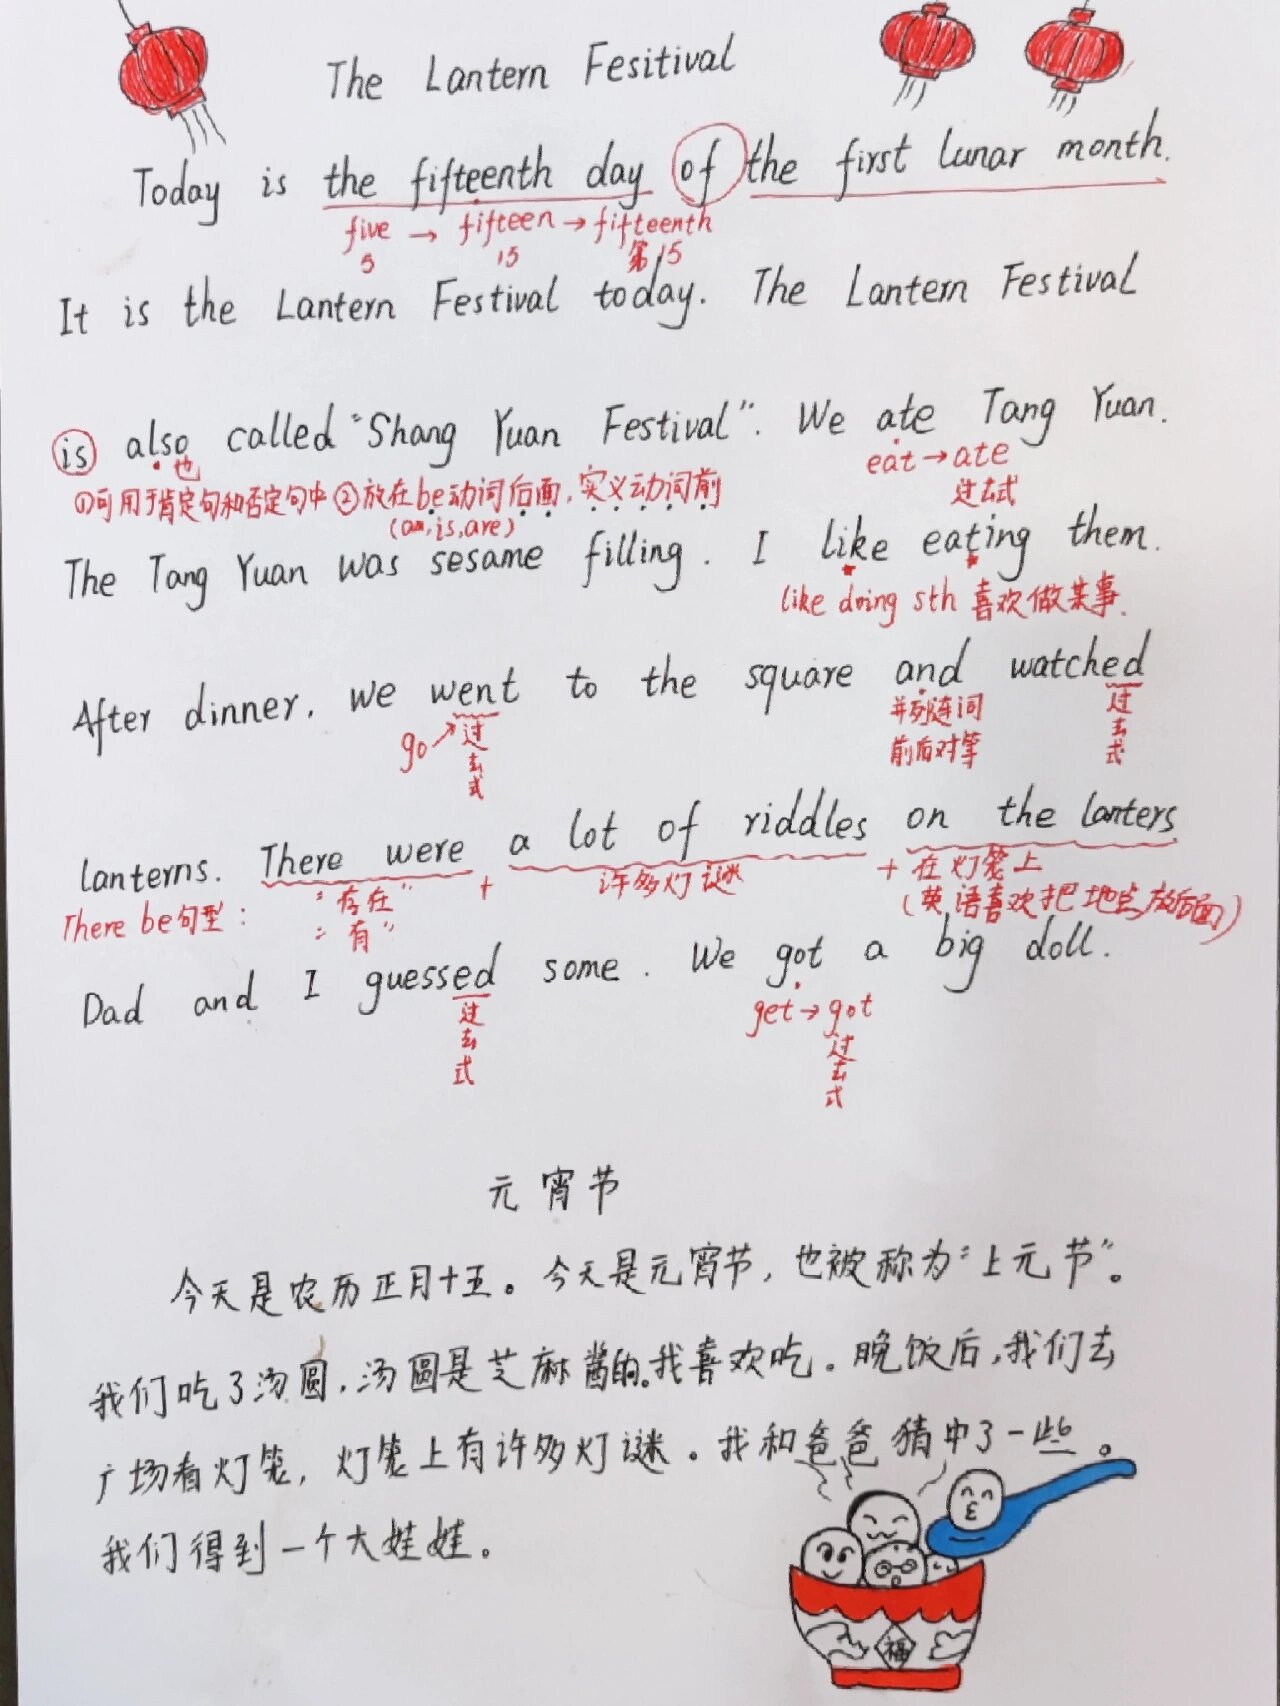 The Lantern Fesitival
Today is the fifteenth day of the first lunar month.
five → fifteen → fifteenth
5 15 第15
It is the Lantern Festival today. The Lantern Festival
is also called "Shang Yuan Festival". We ate Tang Yuan.
也 eat → ate
①可用于肯定句和否定句中 ②放在be动词后面，实义动词前 过去式
(am, is, are)
The Tang Yuan was sesame filling. I like eating them.
like doing sth 喜欢做某事.
After dinner, we went to the square and watched
go 过去式 并列连词 过去式
前后对等
lanterns. There were a lot of riddles on the lanters.
There be句型: "存在" + 许多灯谜 + 在灯笼上
"有" (英语喜欢把地点放后面)
Dad and I guessed some. We got a big doll.
过去式 get → got
过去式
元宵节
今天是农历正月十五。今天是元宵节，也被称为"上元节"。
我们吃了汤圆，汤圆是芝麻酱的。我喜欢吃。晚饭后，我们去
广场看灯笼，灯笼上有许多灯谜。我和爸爸猜中了一些。
我们得到一个大娃娃。
福